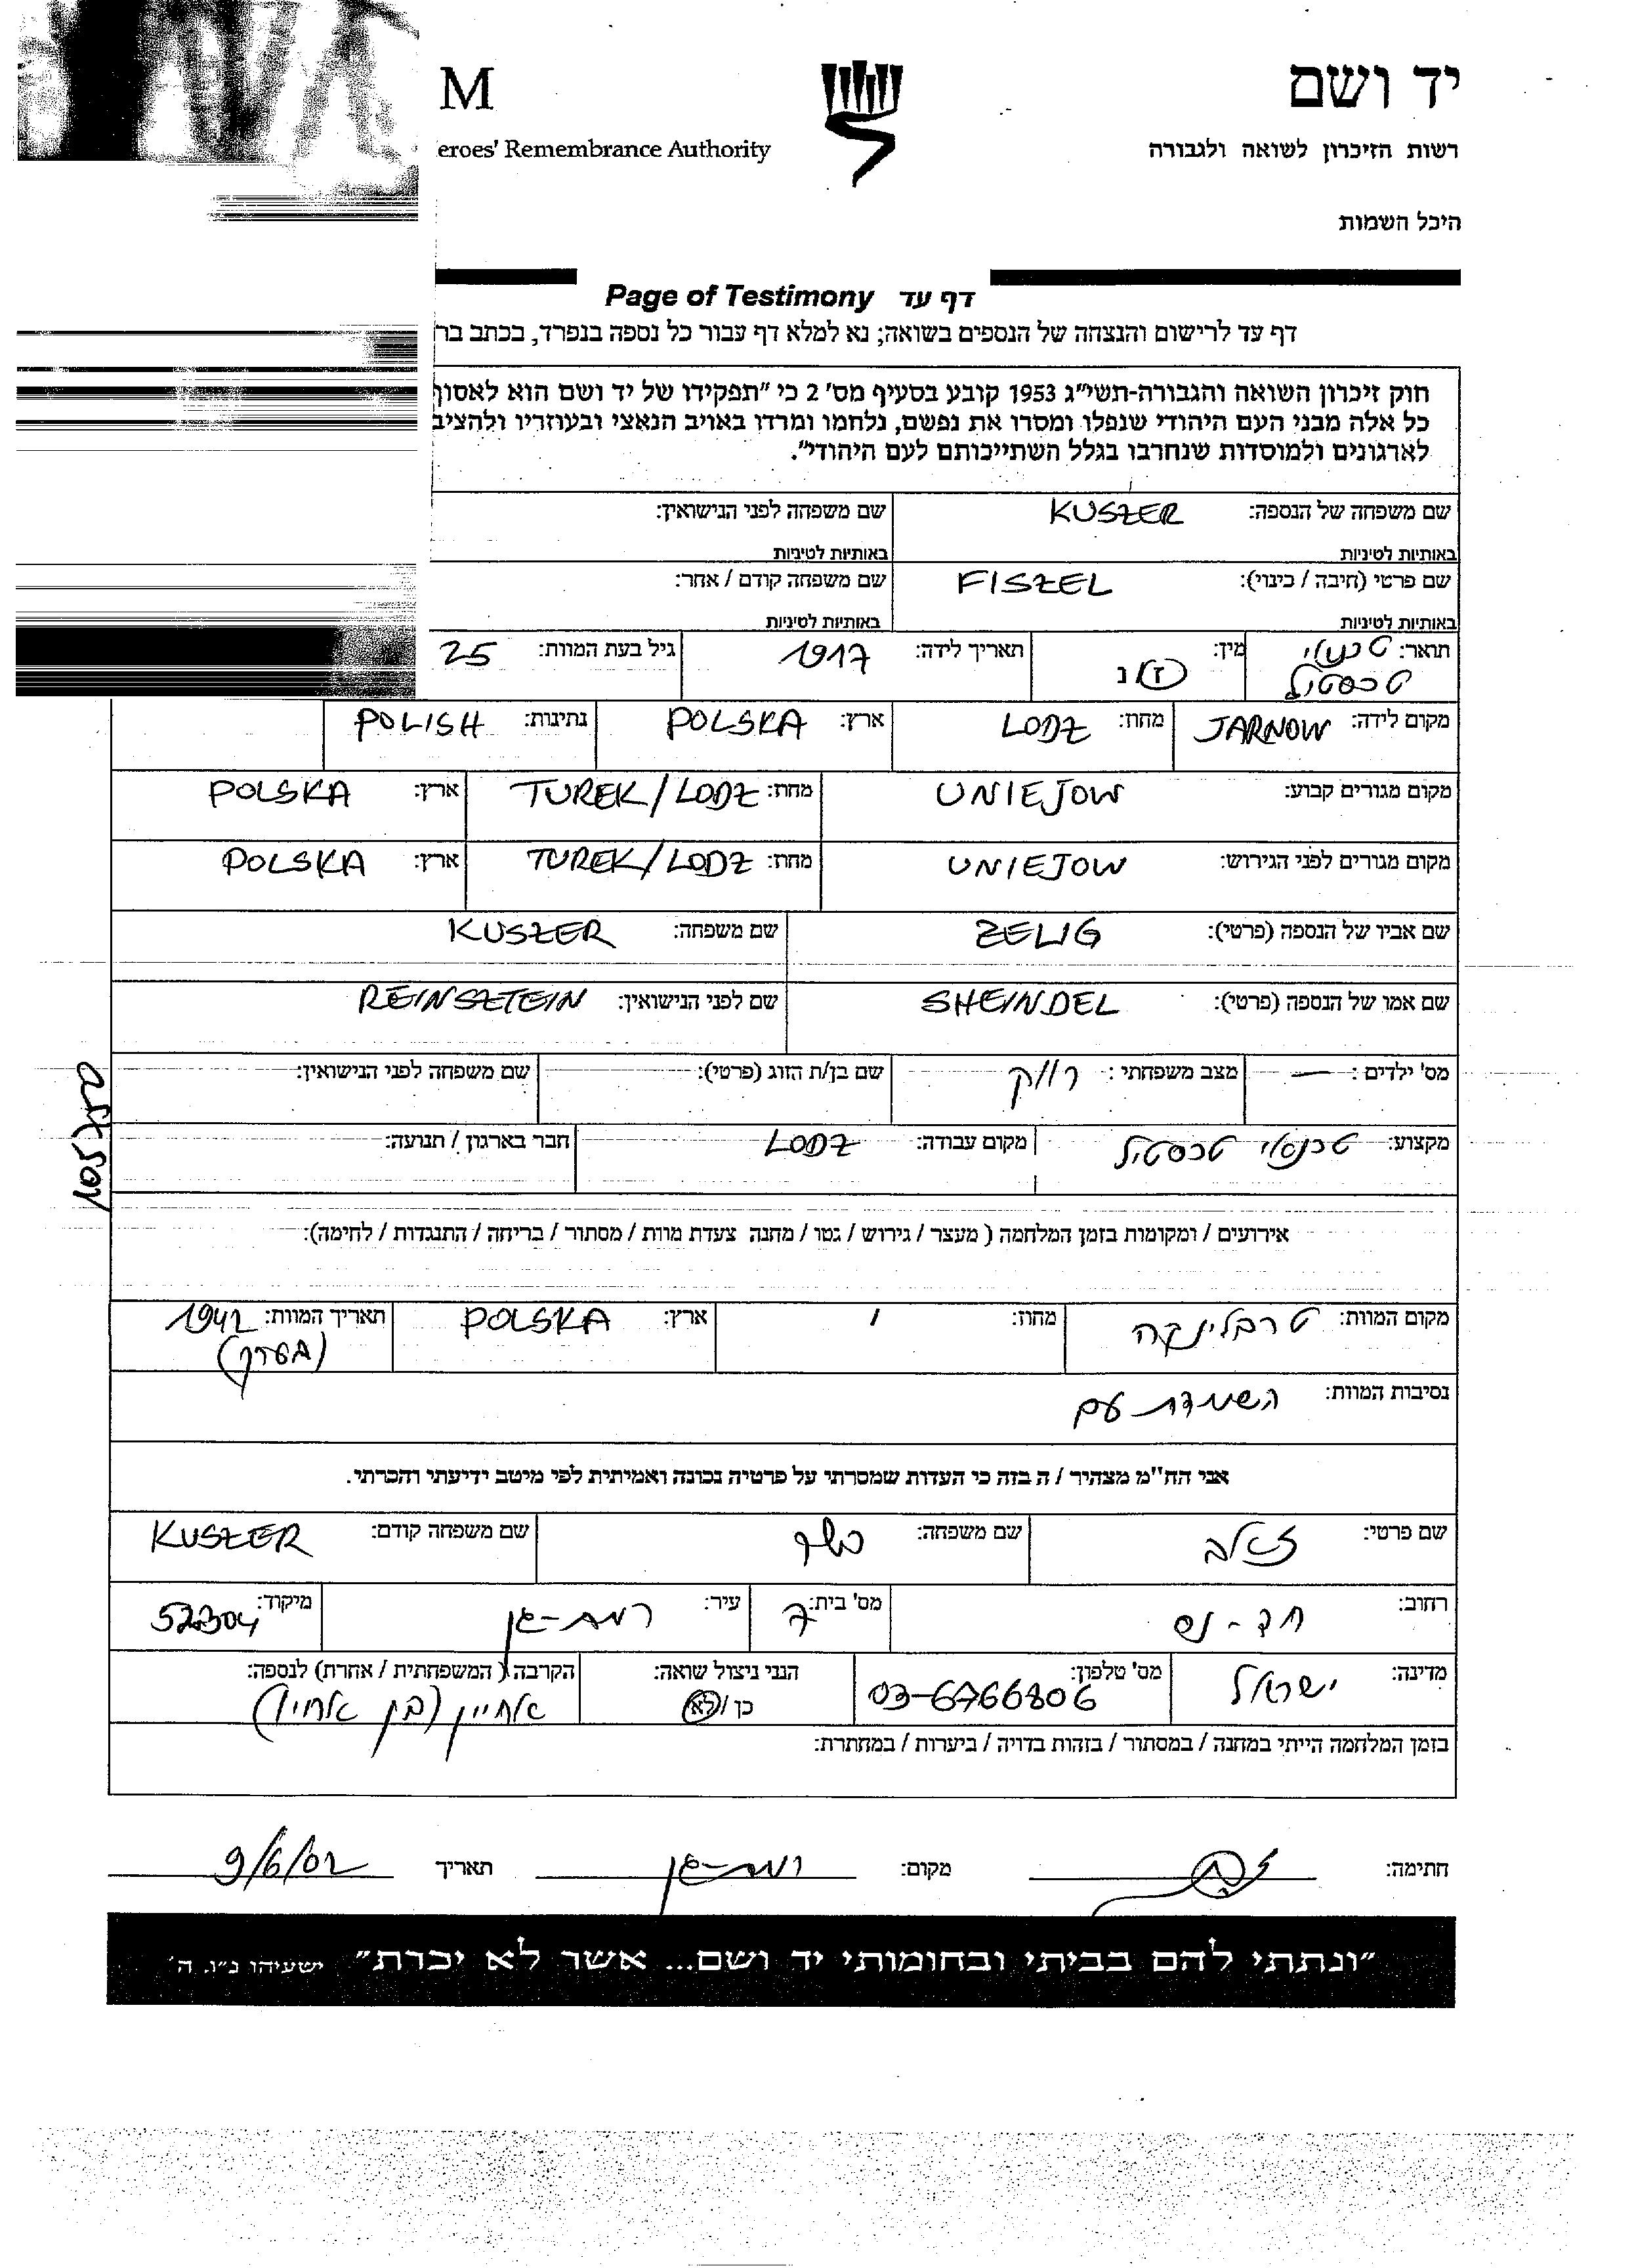 M
יד ושם
eroes' Remembrance Authority
רשות הזיכרון לשואה ולגבורה
היכל השמות
Page of Testimony דף עד
דף עד לרישום והנצחה של הנספים בשואה; נא למלא דף עבור כל נספה בנפרד, בכתב בר
חוק זיכרון השואה והגבורה-תשי"ג 1953 קובע בסעיף מס' 2 כי "תפקידו של יד ושם הוא לאסוף
כל אלה מבני העם היהודי שנפלו ומסרו את נפשם, נלחמו ומרדו באויב הנאצי ובעוזריו ולהציב
לארגונים ולמוסדות שנחרבו בגלל השתייכותם לעם היהודי".
שם משפחה של הנספה: KUSZER שם משפחה לפני הנישואין:
באותיות לטיניות באותיות לטיניות
שם פרטי (חיבה / כינוי): FISZEL שם משפחה קודם / אחר:
באותיות לטיניות באותיות לטיניות
תואר: טכנאי מין: ז/נ תאריך לידה: 1917 גיל בעת המוות: 25
טכסטיל
מקום לידה: JARNOW מחוז: LODZ ארץ: POLSKA נתינות: POLISH
מקום מגורים קבוע: UNIEJOW מחוז: TUREK/LODZ ארץ: POLSKA
מקום מגורים לפני הגירוש: UNIEJOW מחוז: TUREK/LODZ ארץ: POLSKA
שם אביו של הנספה (פרטי): ZELIG שם משפחה: KUSZER
שם אמו של הנספה (פרטי): SHEINDEL שם לפני הנישואין: REINSZTEIN
מס' ילדים: — מצב משפחתי: רווק שם בן/ת הזוג (פרטי): שם משפחה לפני הנישואין:
מקצוע: טכנאי טכסטיל מקום עבודה: LODZ חבר בארגון / תנועה:
אירועים / ומקומות בזמן המלחמה ( מעצר / גירוש / גטו / מחנה צעדת מוות / מסתור / בריחה / התנגדות / לחימה):
מקום המוות: טרבלינקה מחוז: / ארץ: POLSKA תאריך המוות: 1942
(בערך)
נסיבות המוות: השמדת עם
אני הח"מ מצהיר / ה בזה כי העדות שמסרתי על פרטיה נכונה ואמיתית לפי מיטב ידיעתי והכרתי.
שם פרטי: זאב שם משפחה: כשר שם משפחה קודם: KUSZER
רחוב: חד-נס מס' בית: 7 עיר: רמת-גן מיקוד: 52304
מדינה: ישראל מס' טלפון: 03-6766806 הנני ניצול שואה: כן / לא הקרבה ( המשפחתית / אחרת) לנספה: אחיין (בן אחיו)
בזמן המלחמה הייתי במחנה / במסתור / בזהות בדויה / ביערות / במחתרת:
חתימה: מקום: רמת-גן תאריך 9/6/02
"ונתתי להם בביתי ובחומותי יד ושם... אשר לא יכרת" ישעיהו נ"ו, ה'